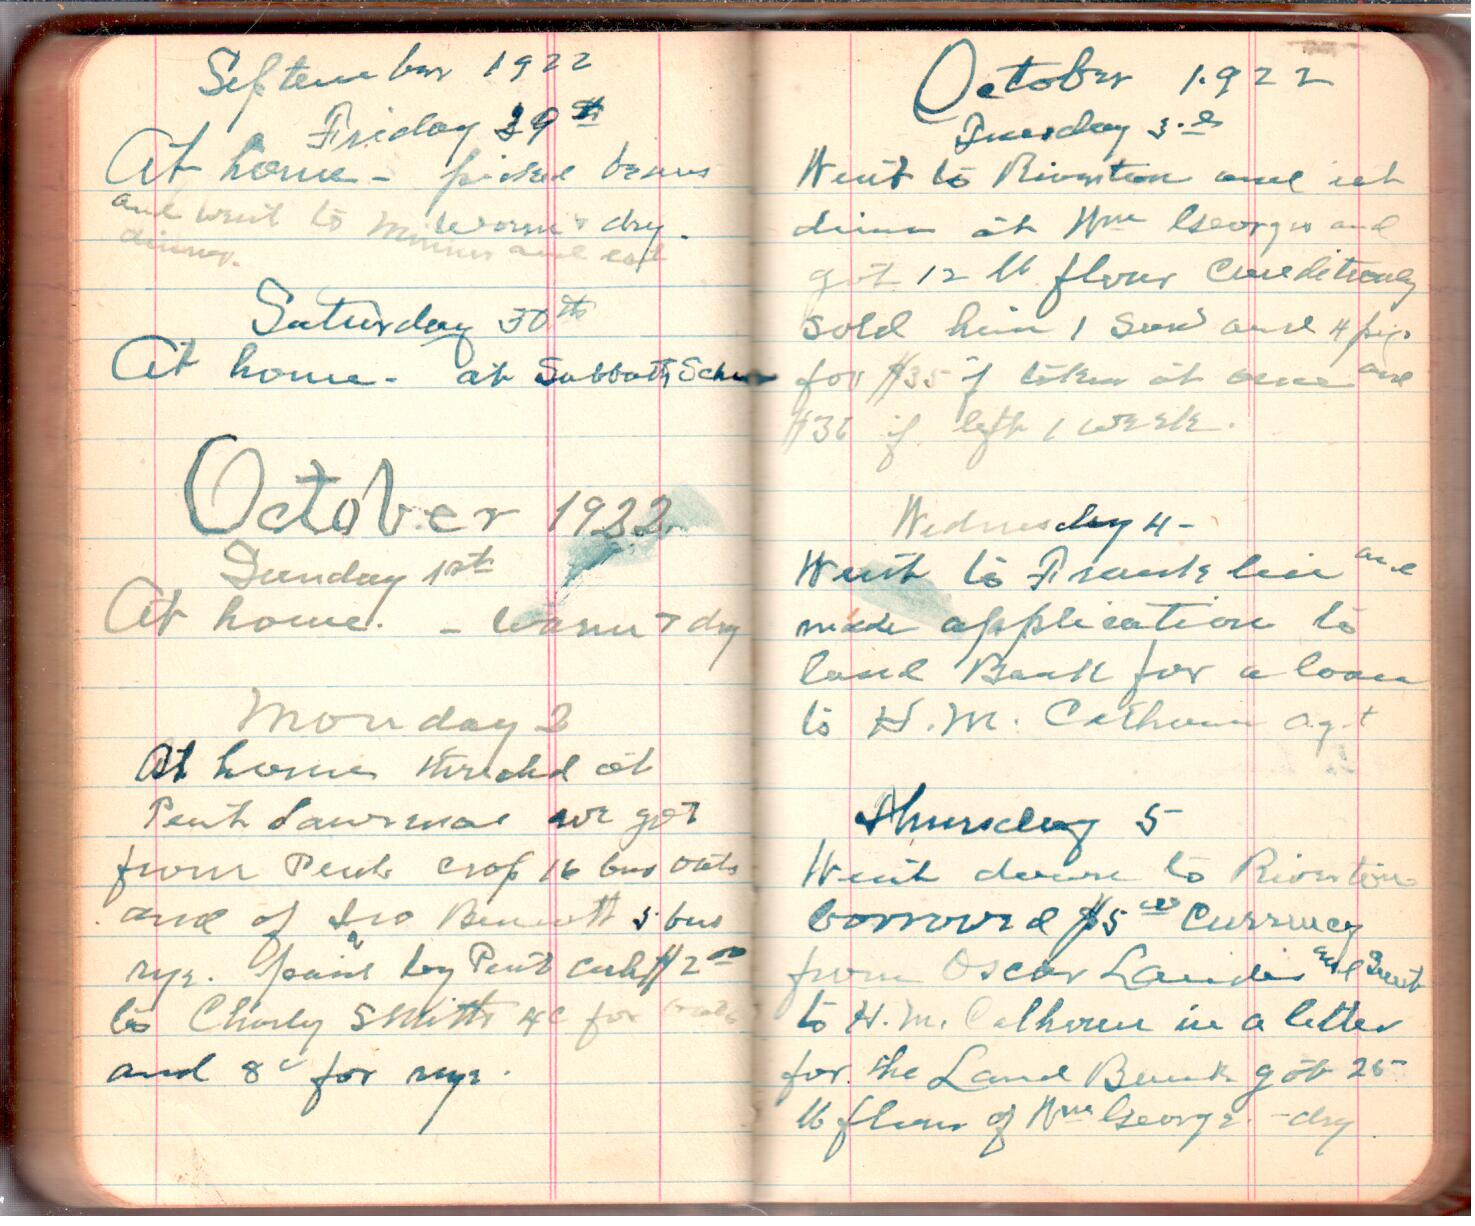 September 1922
Friday 29th
At home - picked beans
and went to warm & dry.
Minnis and eat
dinner.
Saturday 30th
At home - at Sabbath School
October 1922
Sunday 1st
At home. - warm & dry
Monday 2
At home threshed at
Pent Lawrence we got
from Pent crop 16 bus oats
and of Jno Bennett 5 bus
rye. paid by Pent cash $2.00
to Charly Smith 4c for oats
and 8c for rye.
October 1922
Tuesday 3.d
Went to Riverton and eat
dinner at Wm Georges and
got 12 lb flour Conditionaly
sold him 1 sow and 4 pigs
for $35 if taken at once and
$36 if left 1 week.
Wednesday 4-
Went to Franklin and
made application to
land Bank for a loan
to H. M. Calhoun agt
Thursday 5
Went down to Riverton
borrowed $5.00 Currency
from Oscar Landis and sent
to H. M. Calhoun in a letter
for the Land Bank got 25
lb flour of Wm George. - dry